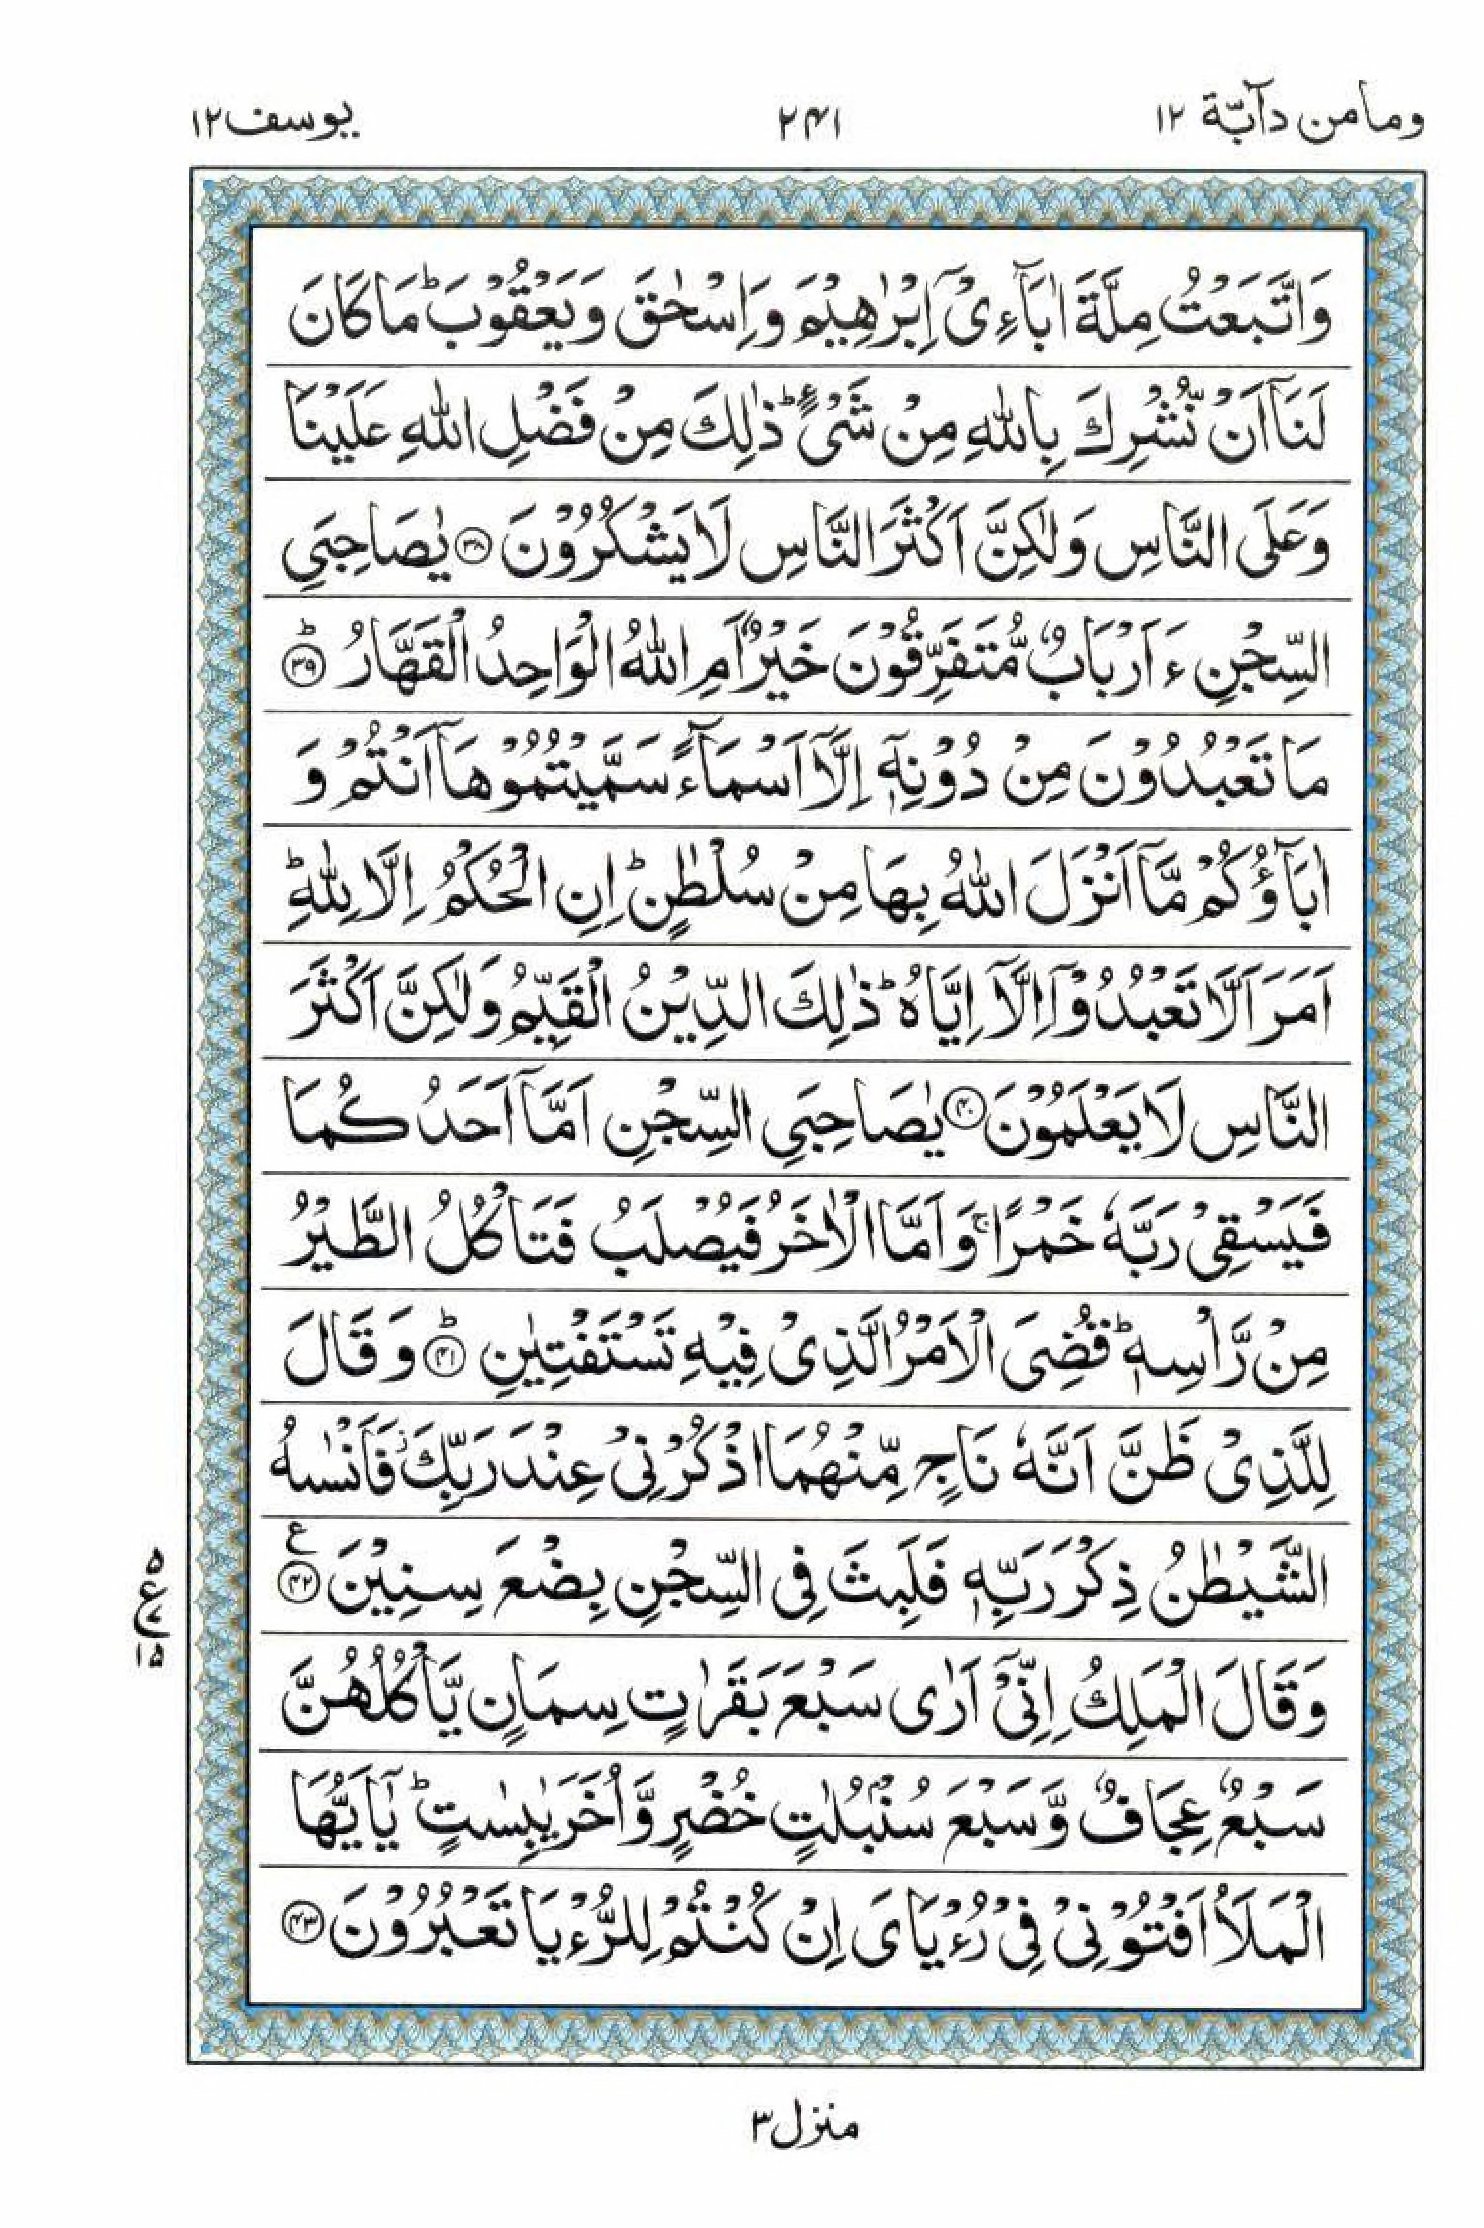 وما من دآبّة ١٢
٢٤١
يوسف ١٢
وَاتَّبَعْتُ مِلَّةَ اٰبَآءِىْۤ اِبْرٰهِيْمَ وَاِسْحٰقَ وَيَعْقُوْبَ ؕ مَا كَانَ
لَنَاۤ اَنْ نُّشْرِكَ بِاللّٰهِ مِنْ شَىْءٍ ؕ ذٰلِكَ مِنْ فَضْلِ اللّٰهِ عَلَيْنَا
وَعَلَى النَّاسِ وَلٰكِنَّ اَكْثَرَ النَّاسِ لَا يَشْكُرُوْنَ ﴿٣٨﴾ يٰصَاحِبَىِ
السِّجْنِ ءَاَرْبَابٌ مُّتَفَرِّقُوْنَ خَيْرٌ اَمِ اللّٰهُ الْوَاحِدُ الْقَهَّارُ ؕ﴿٣٩﴾
مَا تَعْبُدُوْنَ مِنْ دُوْنِهٖۤ اِلَّاۤ اَسْمَآءً سَمَّيْتُمُوْهَاۤ اَنْتُمْ وَ
اٰبَآؤُكُمْ مَّاۤ اَنْزَلَ اللّٰهُ بِهَا مِنْ سُلْطٰنٍ ؕ اِنِ الْحُكْمُ اِلَّا لِلّٰهِ ؕ
اَمَرَ اَلَّا تَعْبُدُوْۤا اِلَّاۤ اِيَّاهُ ؕ ذٰلِكَ الدِّيْنُ الْقَيِّمُ وَلٰكِنَّ اَكْثَرَ
النَّاسِ لَا يَعْلَمُوْنَ ﴿٤٠﴾ يٰصَاحِبَىِ السِّجْنِ اَمَّاۤ اَحَدُكُمَا
فَيَسْقِىْ رَبَّهٗ خَمْرًا ۚ وَاَمَّا الْاٰخَرُ فَيُصْلَبُ فَتَاْكُلُ الطَّيْرُ
مِنْ رَّاْسِهٖ ؕ قُضِىَ الْاَمْرُ الَّذِىْ فِيْهِ تَسْتَفْتِيٰنِ ؕ﴿٤١﴾ وَقَالَ
لِلَّذِىْ ظَنَّ اَنَّهٗ نَاجٍ مِّنْهُمَا اذْكُرْنِىْ عِنْدَ رَبِّكَ ز فَاَنْسٰىهُ
الشَّيْطٰنُ ذِكْرَ رَبِّهٖ فَلَبِثَ فِى السِّجْنِ بِضْعَ سِنِيْنَ ﴿٤٢﴾ ع
٥
ع
٧
١٥
وَقَالَ الْمَلِكُ اِنِّىْۤ اَرٰى سَبْعَ بَقَرٰتٍ سِمَانٍ يَّاْكُلُهُنَّ
سَبْعٌ عِجَافٌ وَّسَبْعَ سُنْۢبُلٰتٍ خُضْرٍ وَّاُخَرَ يٰبِسٰتٍ ؕ يٰۤاَيُّهَا
الْمَلَاُ اَفْتُوْنِىْ فِىْ رُءْيَاىَ اِنْ كُنْتُمْ لِلرُّءْيَا تَعْبُرُوْنَ ﴿٤٣﴾
منزل ٣